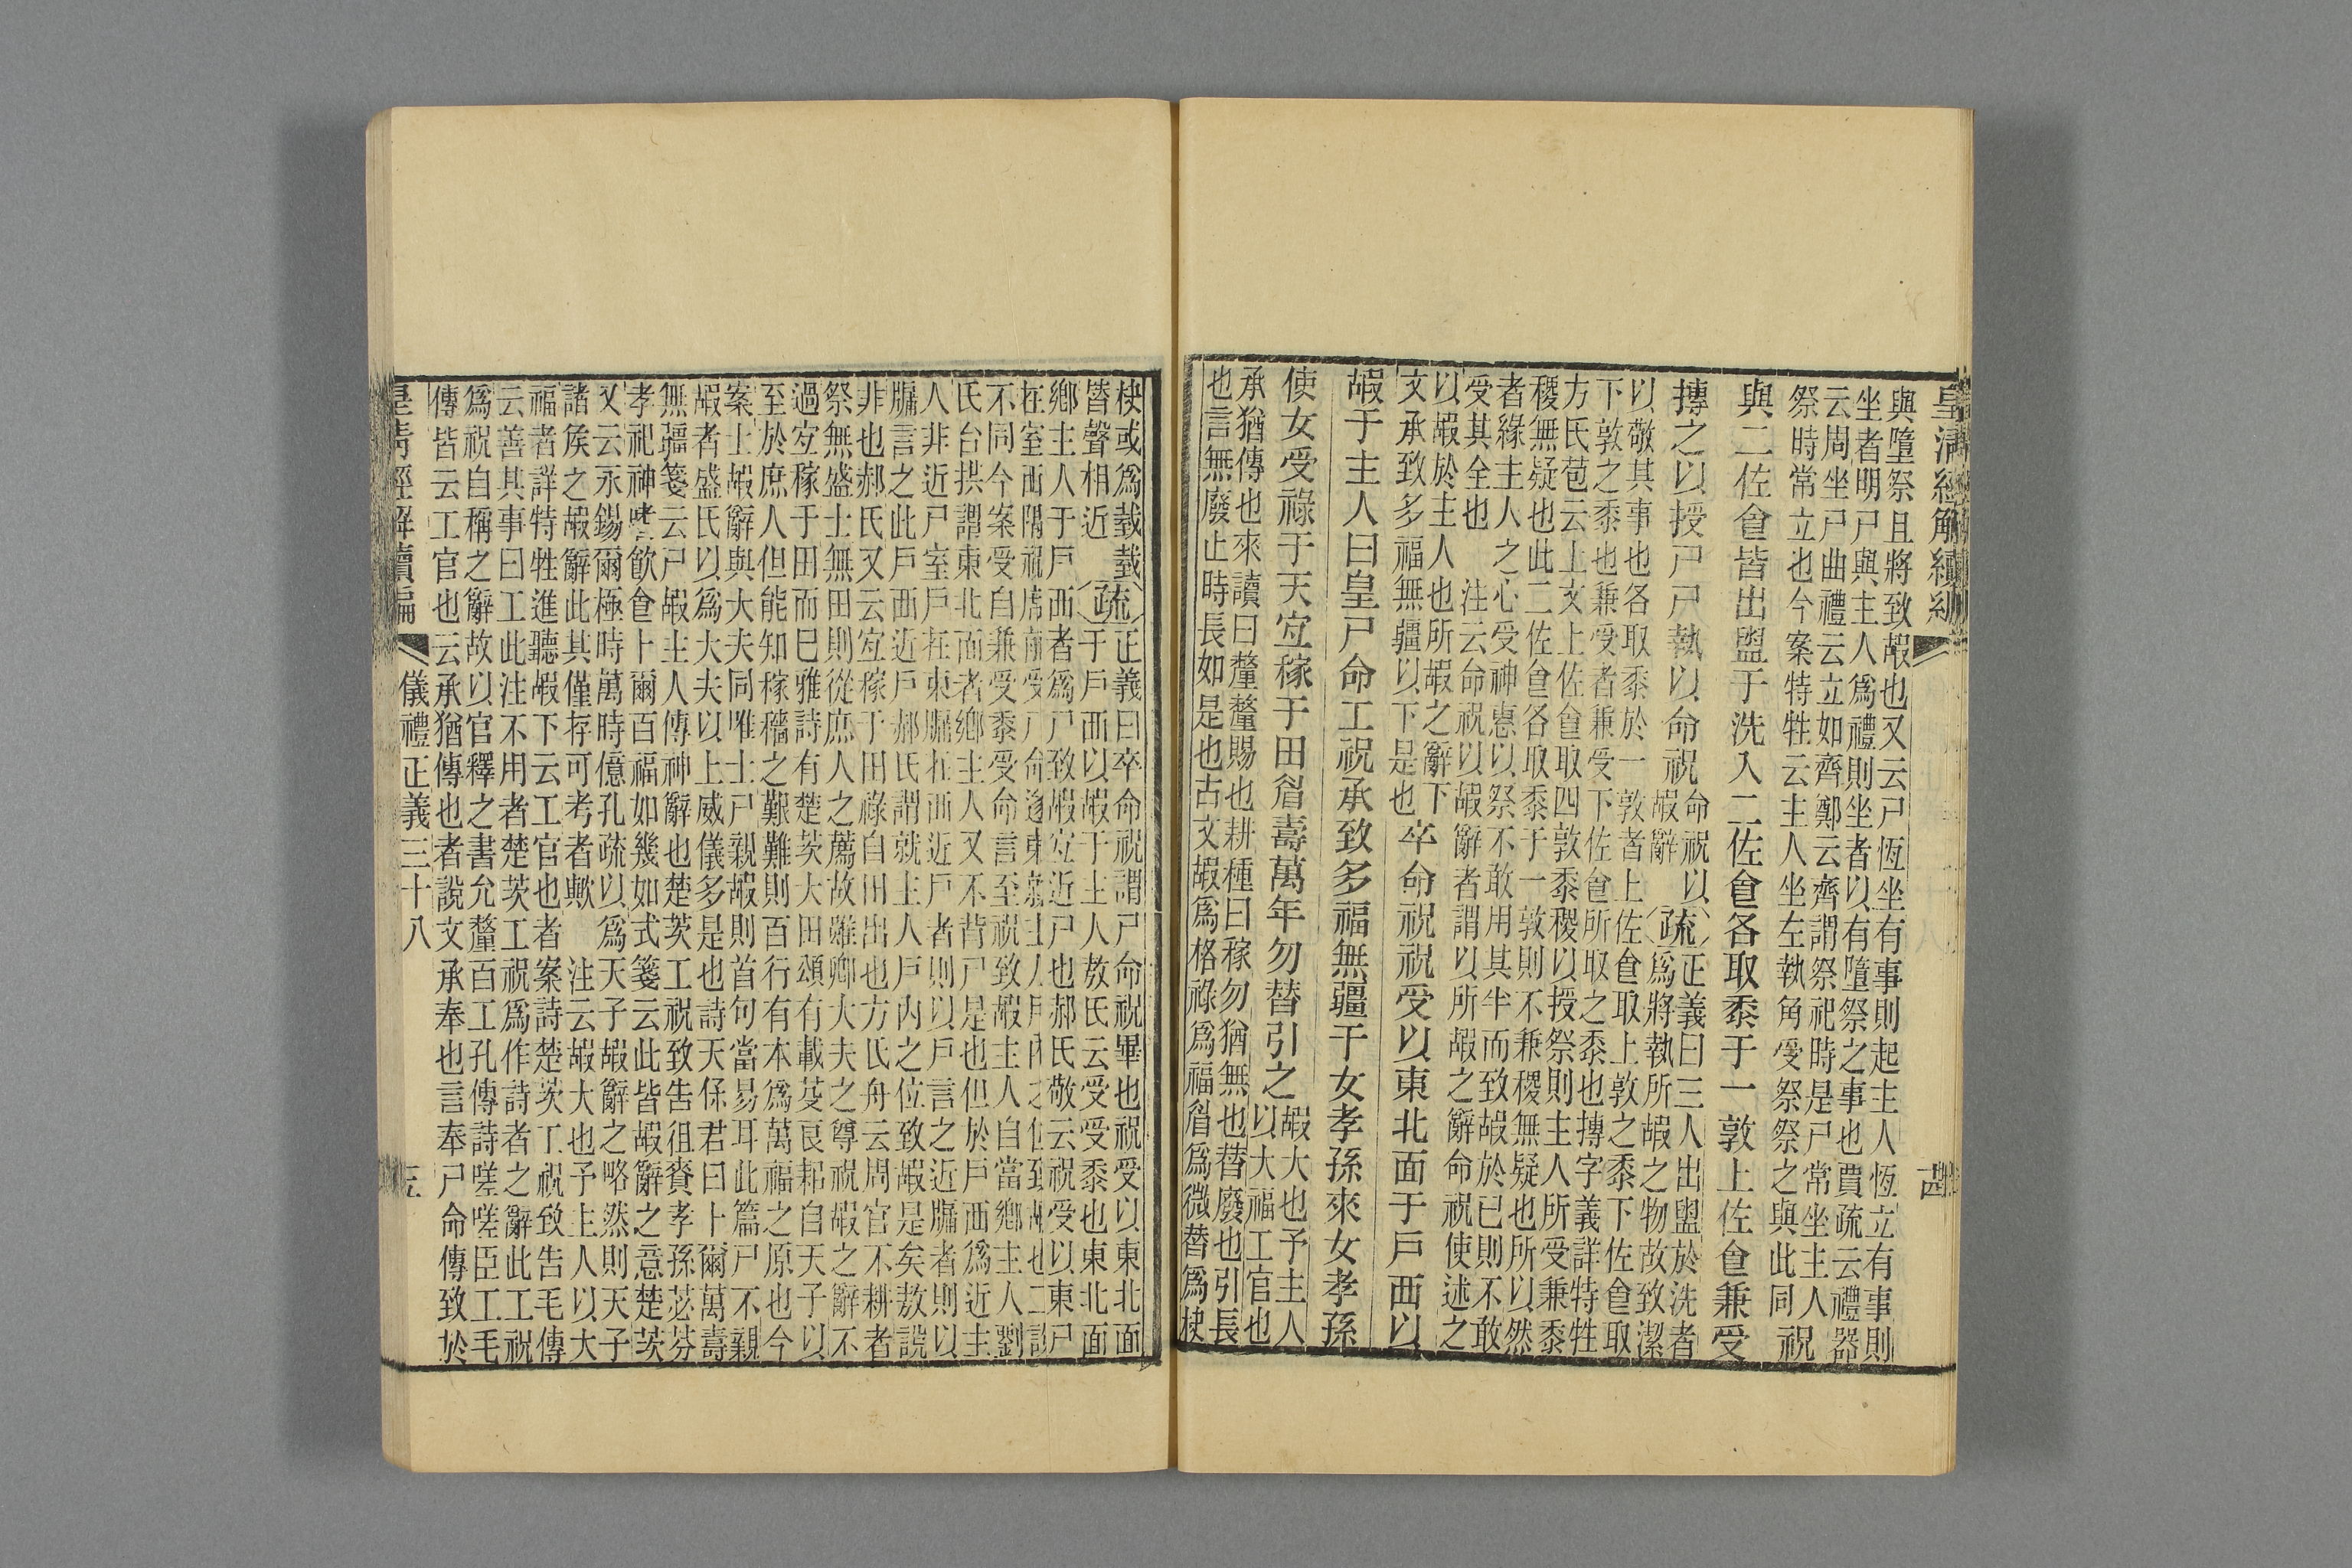 皇清經解續編
與墮祭且將致嘏也又云尸恆坐有事則起主人恆立有事則
坐者明尸與主人爲禮則坐者以有墮祭之事也賈疏云禮器
云周坐尸曲禮云立如齊鄭云齊謂祭祀時是尸常坐主人
祭時常立也今案特牲云主人坐左執角受祭祭之與此同祝
與二佐食皆出盥于洗入二佐食各取黍于一敦上佐食兼受
摶之以授尸尸執以命祝
命祝以
嘏辭
疏
正義曰三人出盥於洗者
爲將執所嘏之物故致潔
以敬其事也各取黍於一敦者上佐食取上敦之黍下佐食取
下敦之黍也兼受者兼受下佐食所取之黍也摶字義詳特牲
方氏苞云上文上佐食取四敦黍稷以授祭則主人所受兼黍
稷無疑也此二佐食各取黍于一敦則不兼稷無疑也所以然
者緣主人之心受神惠以祭不敢用其半而致嘏於已則不敢
受其全也　注云命祝以嘏辭者謂以所嘏之辭命祝使述之
以嘏於主人也所嘏之辭下
文承致多福無疆以下是也
卒命祝祝受以東北面于戶西以
嘏于主人曰皇尸命工祝承致多福無疆于女孝孫來女孝孫
使女受祿于天宜稼于田眉壽萬年勿替引之
嘏大也予主人
以大福工官也
承猶傳也來讀曰釐釐賜也耕種曰稼勿猶無也替廢也引長
也言無廢止時長如是也古文嘏爲格祿爲福眉爲微替爲柣
柣或爲臷臷
皆聲相近
疏
正義曰卒命祝謂尸命祝畢也祝受以東北面
于戶西以嘏于主人敖氏云受受黍也東北面
鄉主人于戶西者爲尸致嘏宜近尸也郝氏敬云祝受以東尸
在室西隅祝席前受尸命遂東就主人戶內之位致嘏也二說
不同今案受自兼受黍受命言至祝致嘏主人自當鄉主人劉
氏台拱謂東北面者鄉主人又不背尸是也但於戶西爲近主
人非近尸室戶在東牖在西近戶者則以戶言之近牖者則以
牖言之此戶西近戶郝氏謂就主人戶內之位致嘏是矣敖說
非也郝氏又云宜稼于田祿自田出也方氏舟云周官不耕者
祭無盛士無田則從庶人之薦故雖卿大夫之尊祝嘏之辭不
過宜稼于田而巳雅詩有楚茨大田頌有載芟良耜自天子以
至於庶人但能知稼穡之艱難則百行有本爲萬福之原也今
案士嘏辭與大夫同唯士尸親嘏則首句當易耳此篇尸不親
嘏者盛氏以爲大夫以上威儀多是也詩天保君曰卜爾萬壽
無疆箋云尸嘏主人傳神辭也楚茨工祝致告徂賚孝孫苾芬
孝祀神嗜飲食卜爾百福如幾如式箋云此皆嘏辭之意楚茨
又云永錫爾極時萬時億孔疏以爲天子嘏辭之略然則天子
諸侯之嘏辭此其僅存可考者歟　注云嘏大也予主人以大
福者詳特牲進聽嘏下云工官也者案詩楚茨工祝致告毛傳
云善其事曰工此注不用者楚茨工祝爲作詩者之辭此工祝
爲祝自稱之辭故以官釋之書允釐百工孔傳詩嗟嗟臣工毛
傳皆云工官也云承猶傳也者說文承奉也言奉尸命傳致於
皇清經解續編　儀禮正義三十八